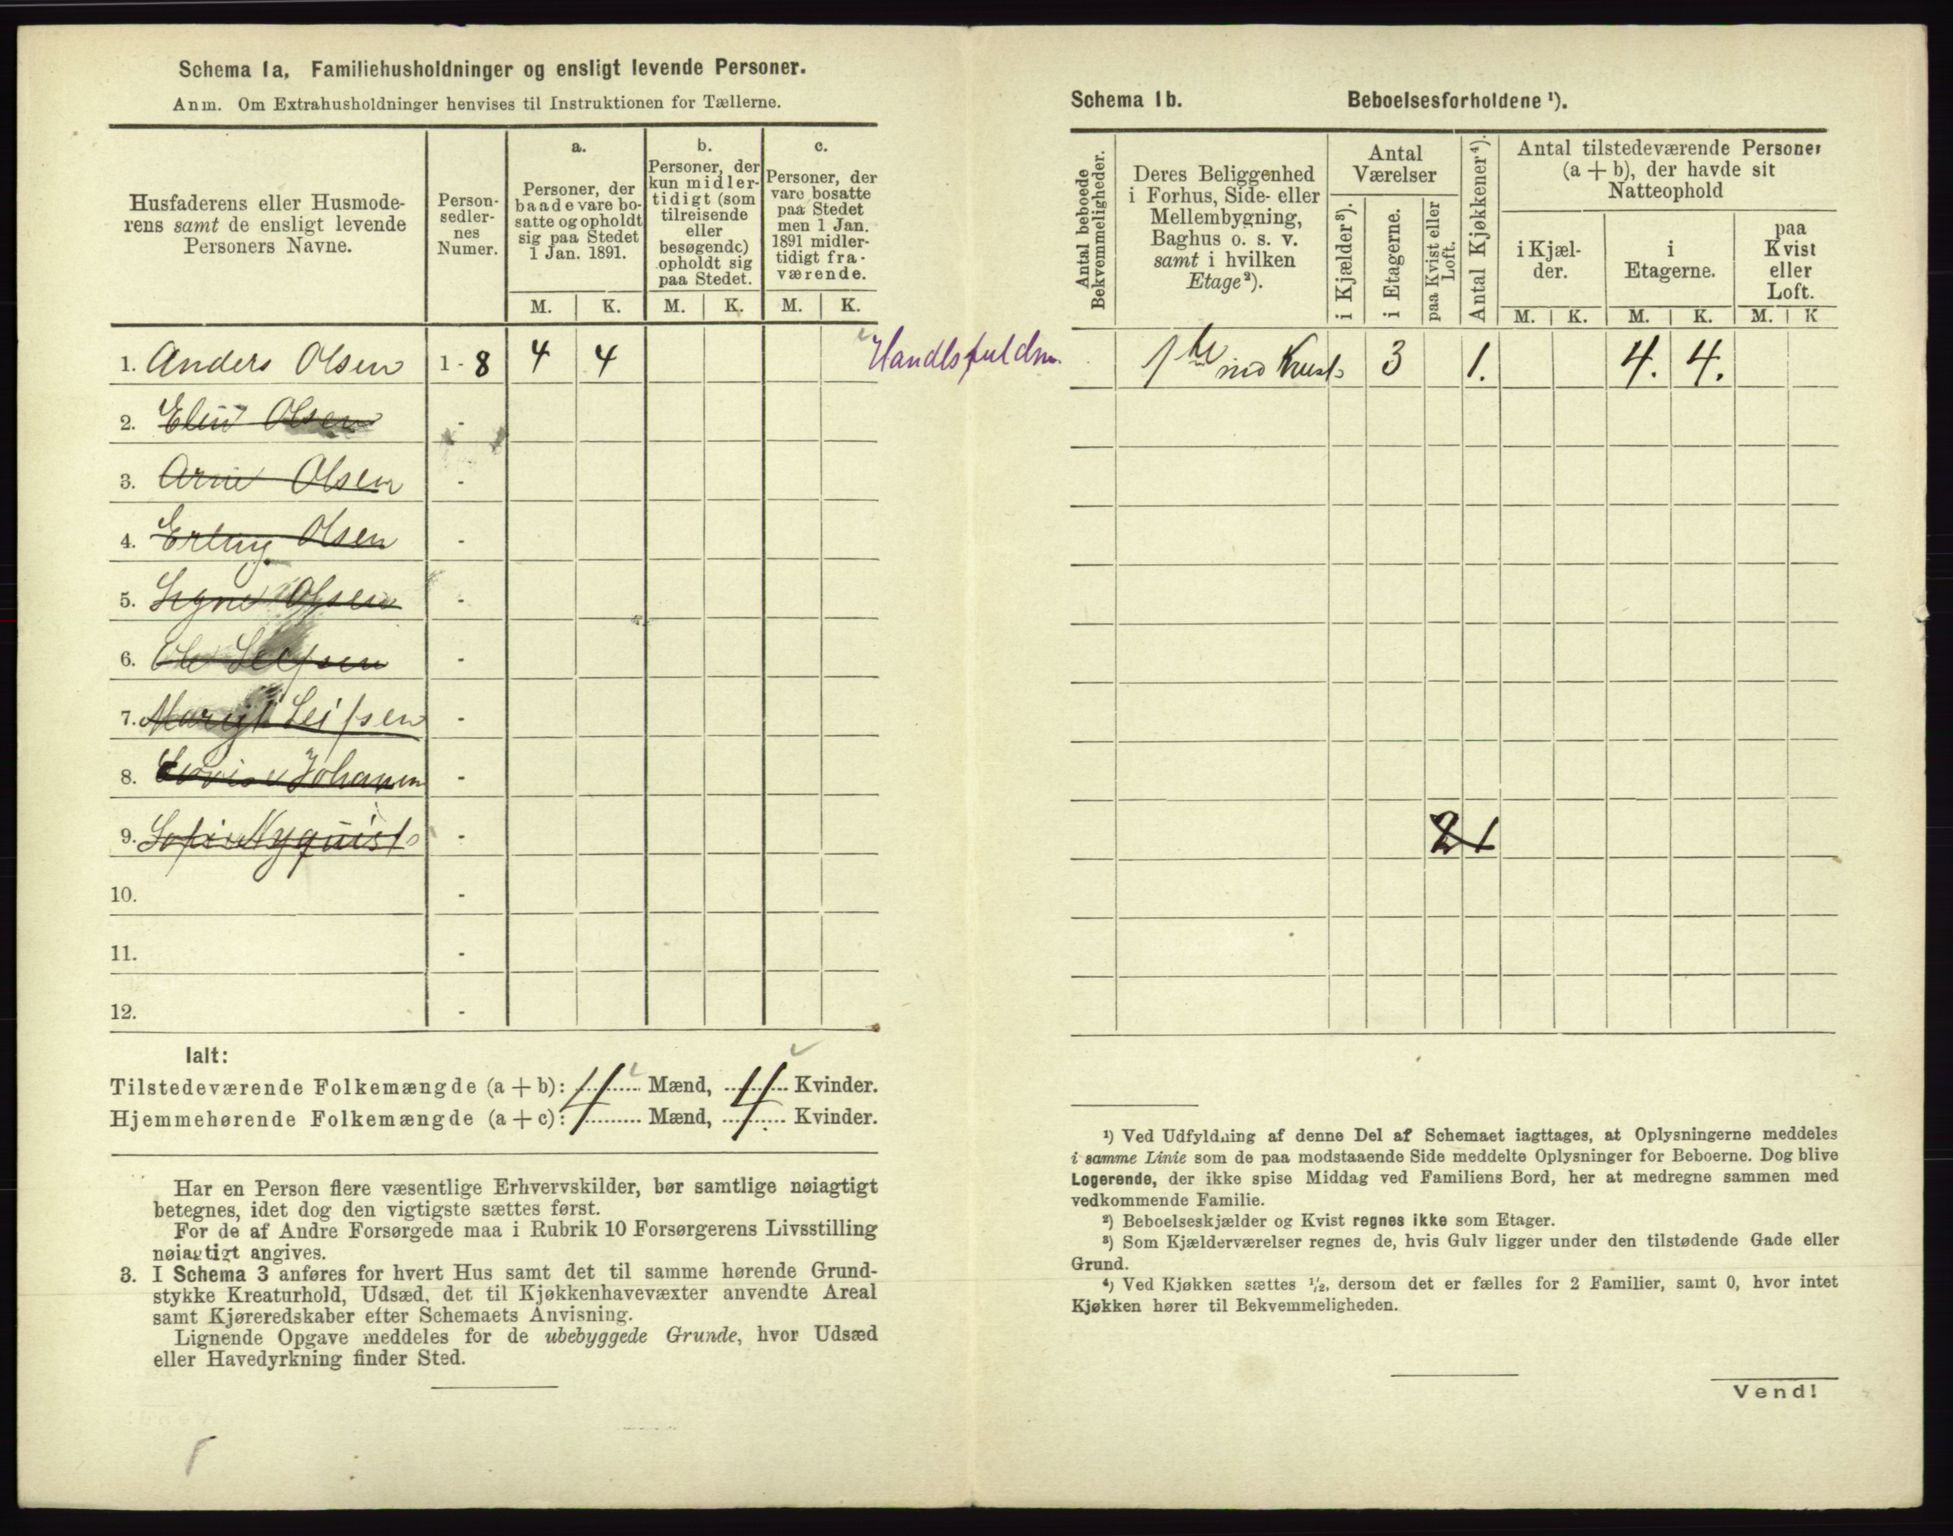 Schema 1a. Familiehusholdninger og ensligt levende Personer.
Anm. Om Extrahusholdninger henvises til Instruktionen for Tællerne.
Husfaderens eller Husmode-
rens samt de ensligt levende
Personers Navne.
Person-
sedler-
nes
Numer.
a.
Personer, der
baade vare bo-
satte og opholdt
sig paa Stedet
1 Jan. 1891.
b.
Personer, der
kun midler-
tidigt (som
tilreisende
eller
besøgende)
opholdt sig
paa Stedet.
c.
Personer, der
vare bosatte
paa Stedet
men 1 Jan.
1891 midler-
tidigt fra-
værende.
M. K. M. K. M. K.
1. Anders Olsen 1 - 8 4 4
2. Olsen -
3. Arne Olsen -
4. Erling Olsen -
5. Signe Olsen -
6. Ole Leifsen -
7. Leifsen -
8. Lovise Johansen -
9. Sofie Nyquist -
10. -
11. -
12. -
Ialt:
Tilstedeværende Folkemængde (a + b): 4 Mænd, 4 Kvinder.
Hjemmehørende Folkemængde (a + c): 4 Mænd, 4 Kvinder.
Har en Person flere væsentlige Erhvervskilder, bør samtlige nøiagtigt
betegnes, idet dog den vigtigste sættes først.
For de af Andre Forsørgede maa i Rubrik 10 Forsørgerens Livsstilling
nøiagtigt angives.
3. I Schema 3 anføres for hvert Hus samt det til samme hørende Grund-
stykke Kreaturhold, Udsæd, det til Kjøkkenhavevæxter anvendte Areal
samt Kjøreredskaber efter Schemaets Anvisning.
Lignende Opgave meddeles for de ubebyggede Grunde, hvor Udsæd
eller Havedyrkning finder Sted.
Schema 1b. Beboelsesforholdene ¹).
Antal beboede
Bekvemmeligheder.
Deres Beliggenhed
i Forhus, Side- eller
Mellembygning,
Baghus o. s. v.
samt i hvilken
Etage²).
Antal
Værelser
i Kjælder³).
i Etagerne.
paa Kvist eller
Loft.
Antal Kjøkkener⁴).
Antal tilstedeværende Personer
(a + b), der havde sit
Natteophold
i Kjæl-
der.
i
Etagerne.
paa
Kvist
eller
Loft.
M. K. M. K. M. K
1 3 1. 4. 4.
2 1
¹) Ved Udfyldning af denne Del af Schemaet iagttages, at Oplysningerne meddeles
i samme Linie som de paa modstaaende Side meddelte Oplysninger for Beboerne. Dog blive
Logerende, der ikke spise Middag ved Familiens Bord, her at medregne sammen med
vedkommende Familie.
²) Beboelseskjælder og Kvist regnes ikke som Etager.
³) Som Kjælderværelser regnes de, hvis Gulv ligger under den tilstødende Gade eller
Grund.
⁴) Ved Kjøkken sættes ¹/₂, dersom det er fælles for 2 Familier, samt 0, hvor intet
Kjøkken hører til Bekvemmeligheden.
Vend!